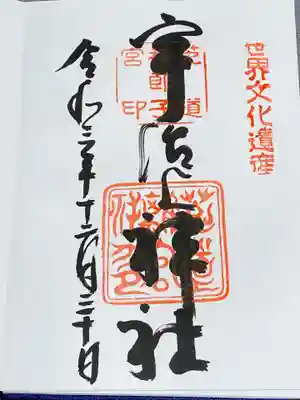 世界文化遺産
宇治上神社
菟道
稚郎子
宮印
令和三年十二月二十日